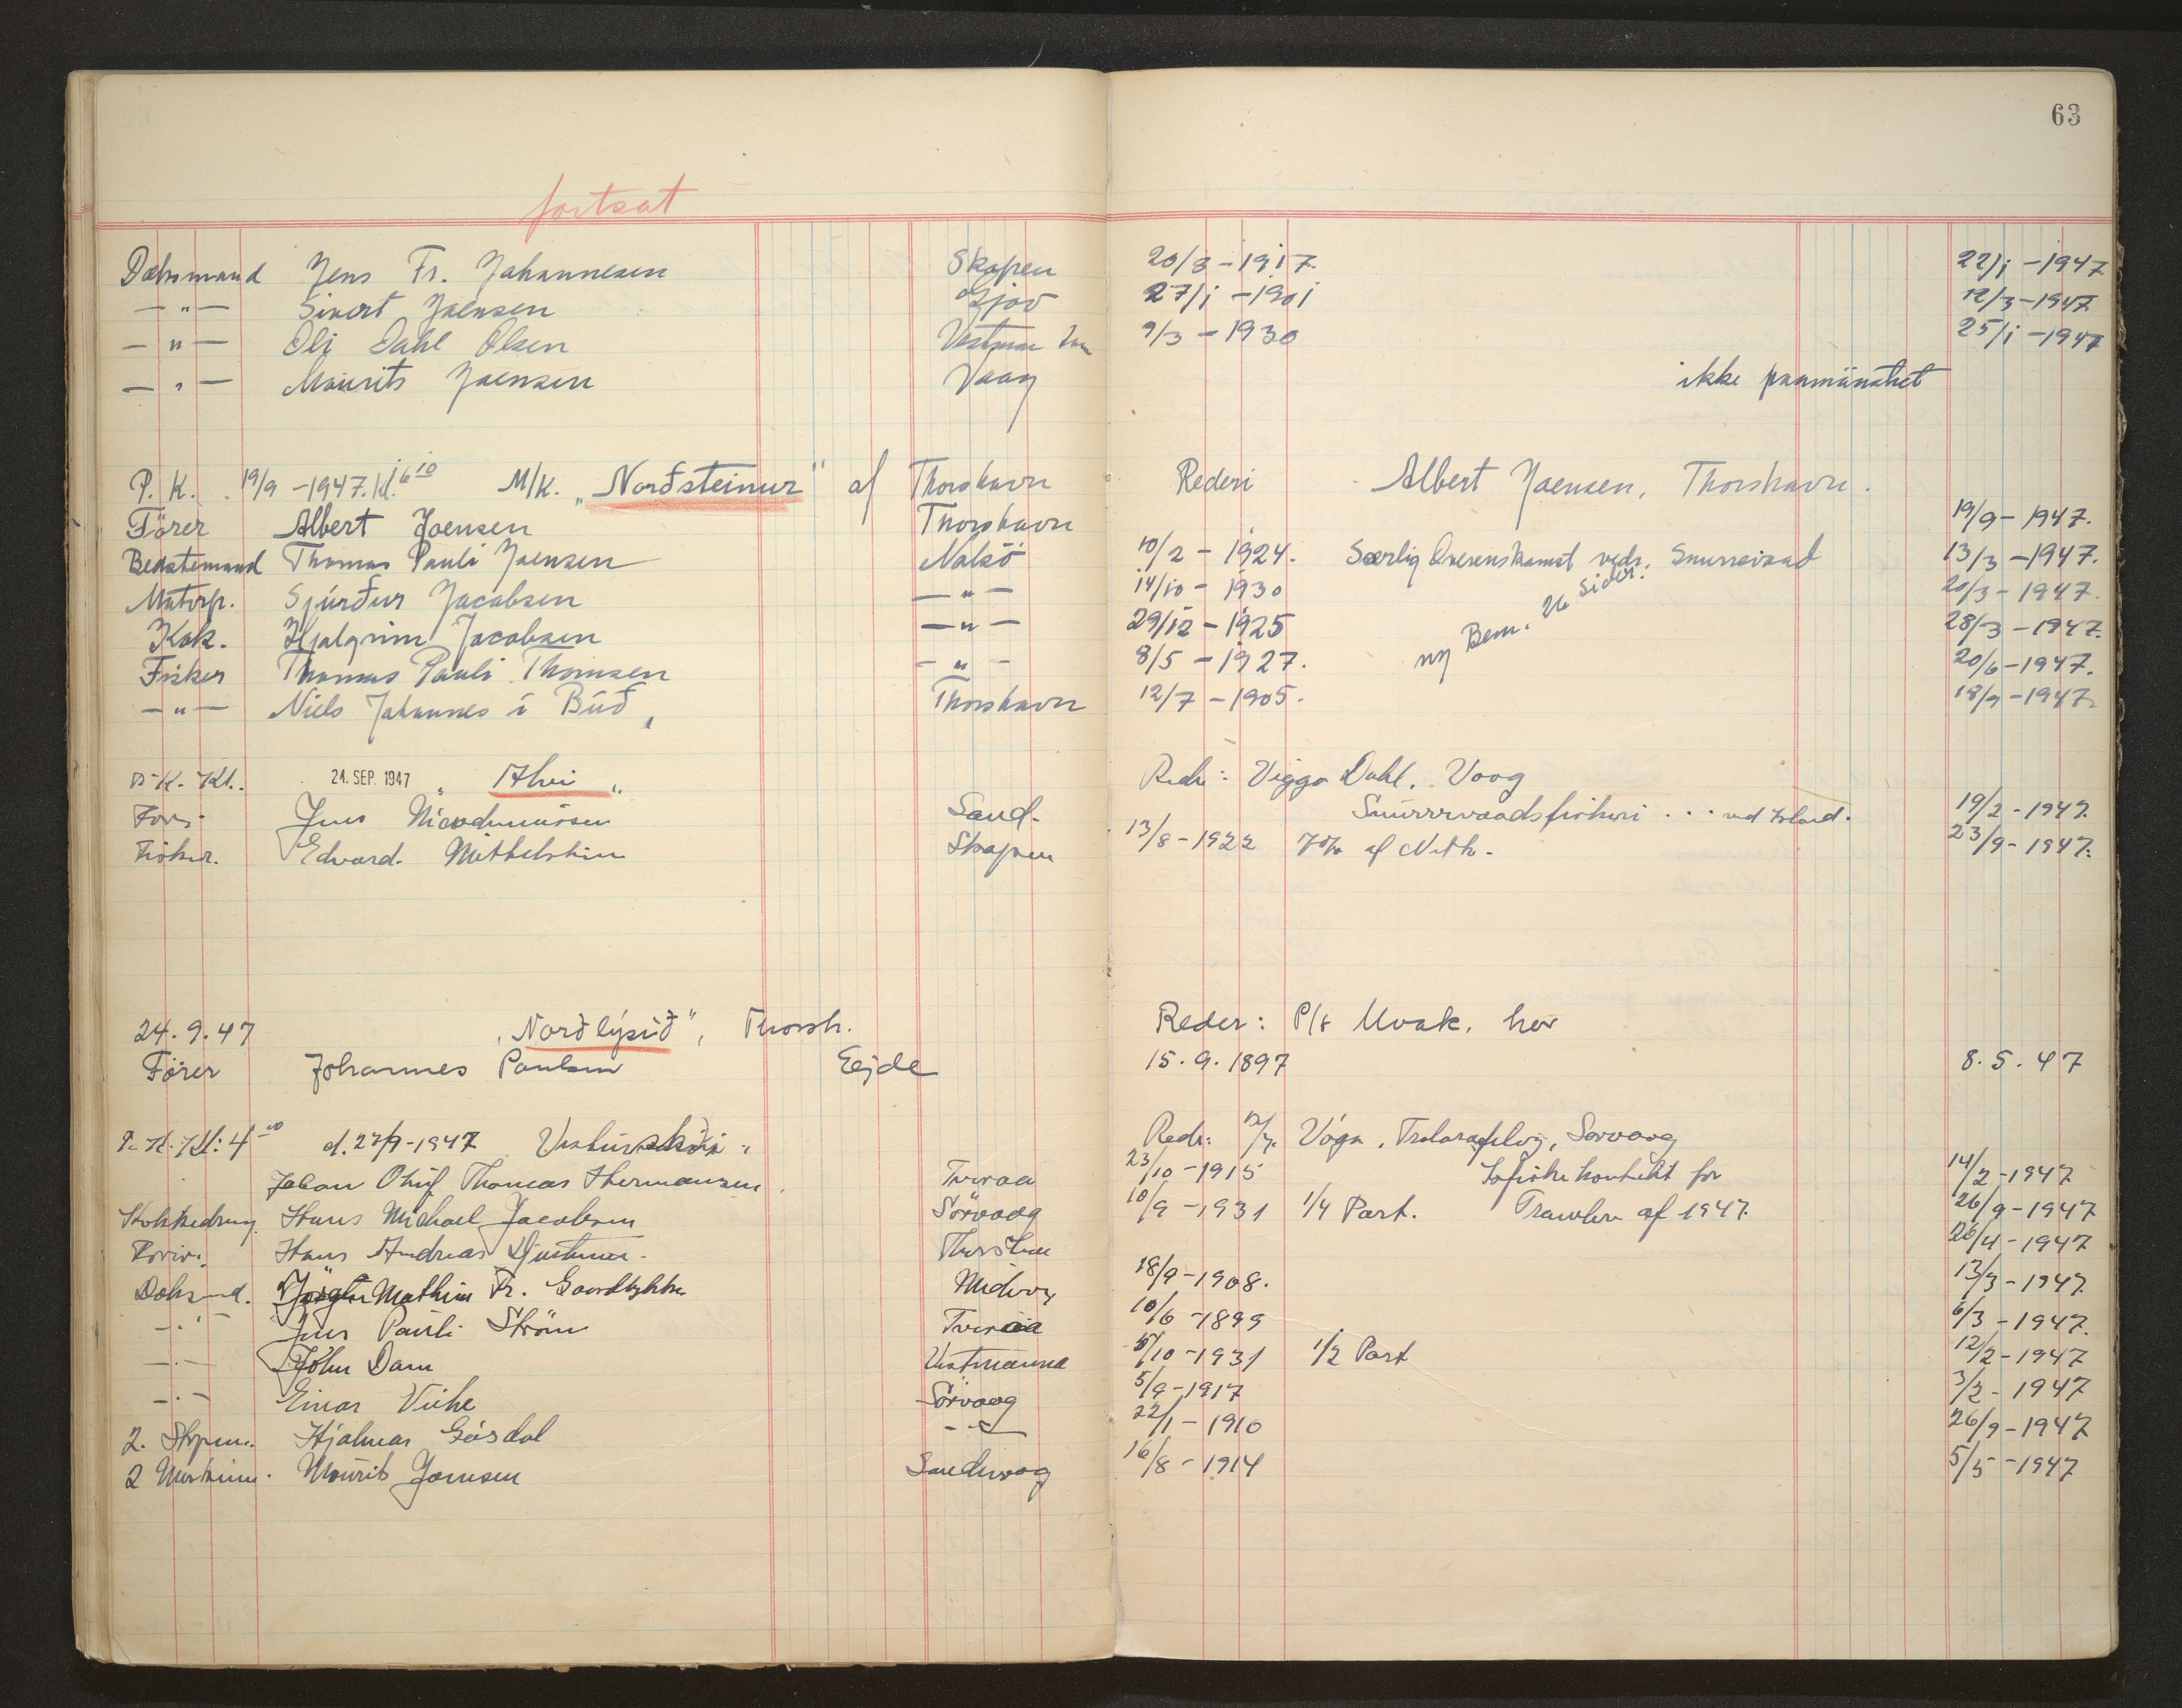 63
fortsat
Dæksmand Jens Fr. Johannesen Skopen 20/8 - 1917. 22/1 - 1947
— " — Sivert Joensen Gjov 27/1 - 1901 12/3 - 1947
— " — Oli Dahl Olsen 9/3 - 1930 25/1 - 1947
— " — Mourits Joensen Vaag ikke paamönstret
P. K. 19/9 - 1947. kl. 16 10 M/K. „Norðsteinur" af Thorshavn Rederi Albert Joensen, Thorshavn.
Förer Albert Joensen Thorshavn 19/9 - 1947.
Bedstemand Thomas Pauli Joensen Nolsö 10/2 - 1924. Særlig Overenskomst vedr. Snurrevaad 13/3 - 1947.
Motorp. Sjúrður Jacobsen — " — 14/10 - 1930 ny Bem. 26 sider. 20/3 - 1947.
Kok. Hjalgrim Jacobsen — " — 29/12 - 1925 28/3 - 1947.
Fisker Thomas Pauli Thomsen - " - 8/5 - 1927. 20/6 - 1947.
— " — Niels Johannes i Búð Thorshavn 12/7 - 1905. 18/9 - 1947.
P. K. Kl.. 24. SEP. 1947 Rede: Viggo Dahl, Vaag
Förer Jens Sand. Snurrevaadsfiskeri . . . ved Island. 19/2 - 1947.
Fisker. Edvard Skopen 13/8 - 1922 70% af Neth. 23/9 - 1947.
24.9.47 „Norðlýsið", Thorsh. Reder: P/f Kvak, her
Förer Johannes Poulsen Ejde 15.9.1897 8.5.47
P. K. Kl: 4 00 d. 27/9 - 1947 Reder: P/f. Vága, Trolarafelag, Sorvaag
Thomas Hermansen Tveraa 23/10 - 1915 for 14/2 - 1947
Hans Michael Jacobsen Sörvaag 10/9 - 1931 1/4 Part. Trawlere af 1947. 26/9 - 1947
Hans Andreas 26/4 - 1947
Doksmd. Mathias Fr. Midvaag 18/9 - 1908. 13/3 - 1947.
- " - Jens Pauli Ström Tveraa 10/6 - 1899 6/3 - 1947.
— . — John Dam Vestmanna /10 - 1931 1/2 Part 12/2 - 1947
- . - Einar Viðhe Sörvaag 5/9 - 1917 3/2 - 1947
2. Hjalmar Gásdal - " - 22/1 - 1910 26/9 - 1947
2 Mourits Joensen Sandevaag 16/8 - 1914 5/5 - 1947